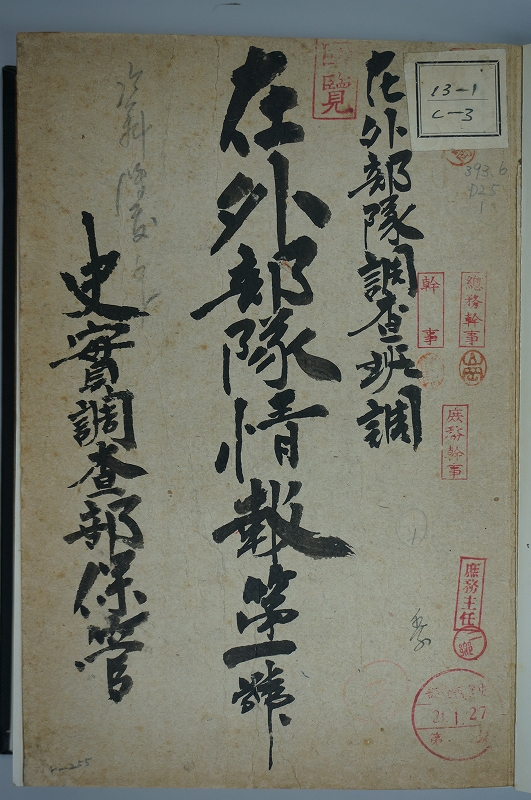 13-1
C-3
393.6
在外部隊調査班調
在外部隊情報第一號
史實調査部保管
覽
幹事
總務幹事
庶務幹事
庶務主任
21.1.27
第